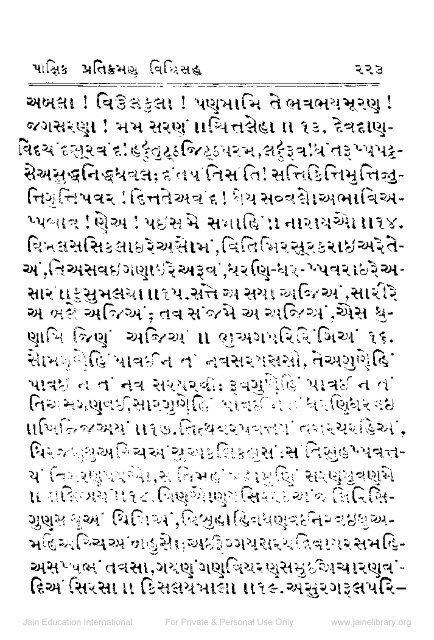 પાક્ષિક પ્રતિક્રમણ વિધિસહ ૨૨૩
અબલા ! વિઉલકુલા ! પણમામિ તે ભવભયમૂરણ !
જગસરણા ! મમ સરણં ॥ચિત્તલેહા ॥ ૧૩. દેવદાણ-
વિંદચંદસૂરવંદ! હટ્ઠતુટ્ઠજિટ્ઠપરમ,લટ્ઠરૂવ! ધંતરૂપ્પપટ્ટ-
સેઅસુદ્ધનિદ્ધધવલ; દંતપંતિસંતિ! સત્તિકિત્તિમુત્તિજુ-
ત્તિગુત્તિપવર !દિત્તતેઅવંદ! ધેયસવ્વલોઅભાવિઅ-
પ્પભાવ ! ણેઅ ! પઇસ મે સમાહિં ॥ નારાયઓ ॥૧૪.
વિમલસસિકલાઇરેઅસોમં,વિતિમિરસૂરકરાઇઅરેતે-
અં,તિઅસવઇગણાઇરેઅરૂવં,ધરણિ-ધર-પ્પવરાઇરેઅ-
સારં॥કુસુમલયા॥૧૫.સત્તે અ સયા અજિઅં,સારીરે
અ બલે અજિઅં; તવ સંજમે અ અજિઅં,એસ થુ-
ણામિ જિણં અજિઅં ॥ ભુઅગપરિરિંગિઅં ૧૬.
સોમગુણેહિં પાવઈ ન તં નવસરયસસી, તેઅગુણેહિં
પાવઈ ન તં નવ સરયરવી; રૂવગુણેહિં પાવઈ ન તં
તિઅસગણવઈ,સારગુણેહિં પાવઈ ન તં ધરણિધરવઇ
॥ખિજ્જિઅયં ॥૧૭.તિત્થવરપવત્તયં તમરયરહિઅં,
ધીરજણથુઅચ્ચિઅં ચુઅકલિકલુસં; સંતિસુહપ્પવત્ત-
યં તિગરણપયઓ,સંતિમહં મહામુણિં સરણમુવણમે
॥ ૧૮.વિણઓણયસિરરઇઅંજલિરિસિ-
ગુણસંથુઅં થિમિઅં,વિબુહાહિવધણવઇનરવઇથુઅ-
મહિઅચ્ચિઅં બહુસો;અઇરૂગ્ગયસરયદિવાયરસમહિ-
અસપ્પભં તવસા,ગયણંગણવિયરણસમુઇઅચારણવં-
દિઅં સિરસા ॥ કિસલયમાલા ॥૧૯.અસુરગરૂલપરિ-
Jain Education International For Private & Personal Use Only www.jainelibrary.org